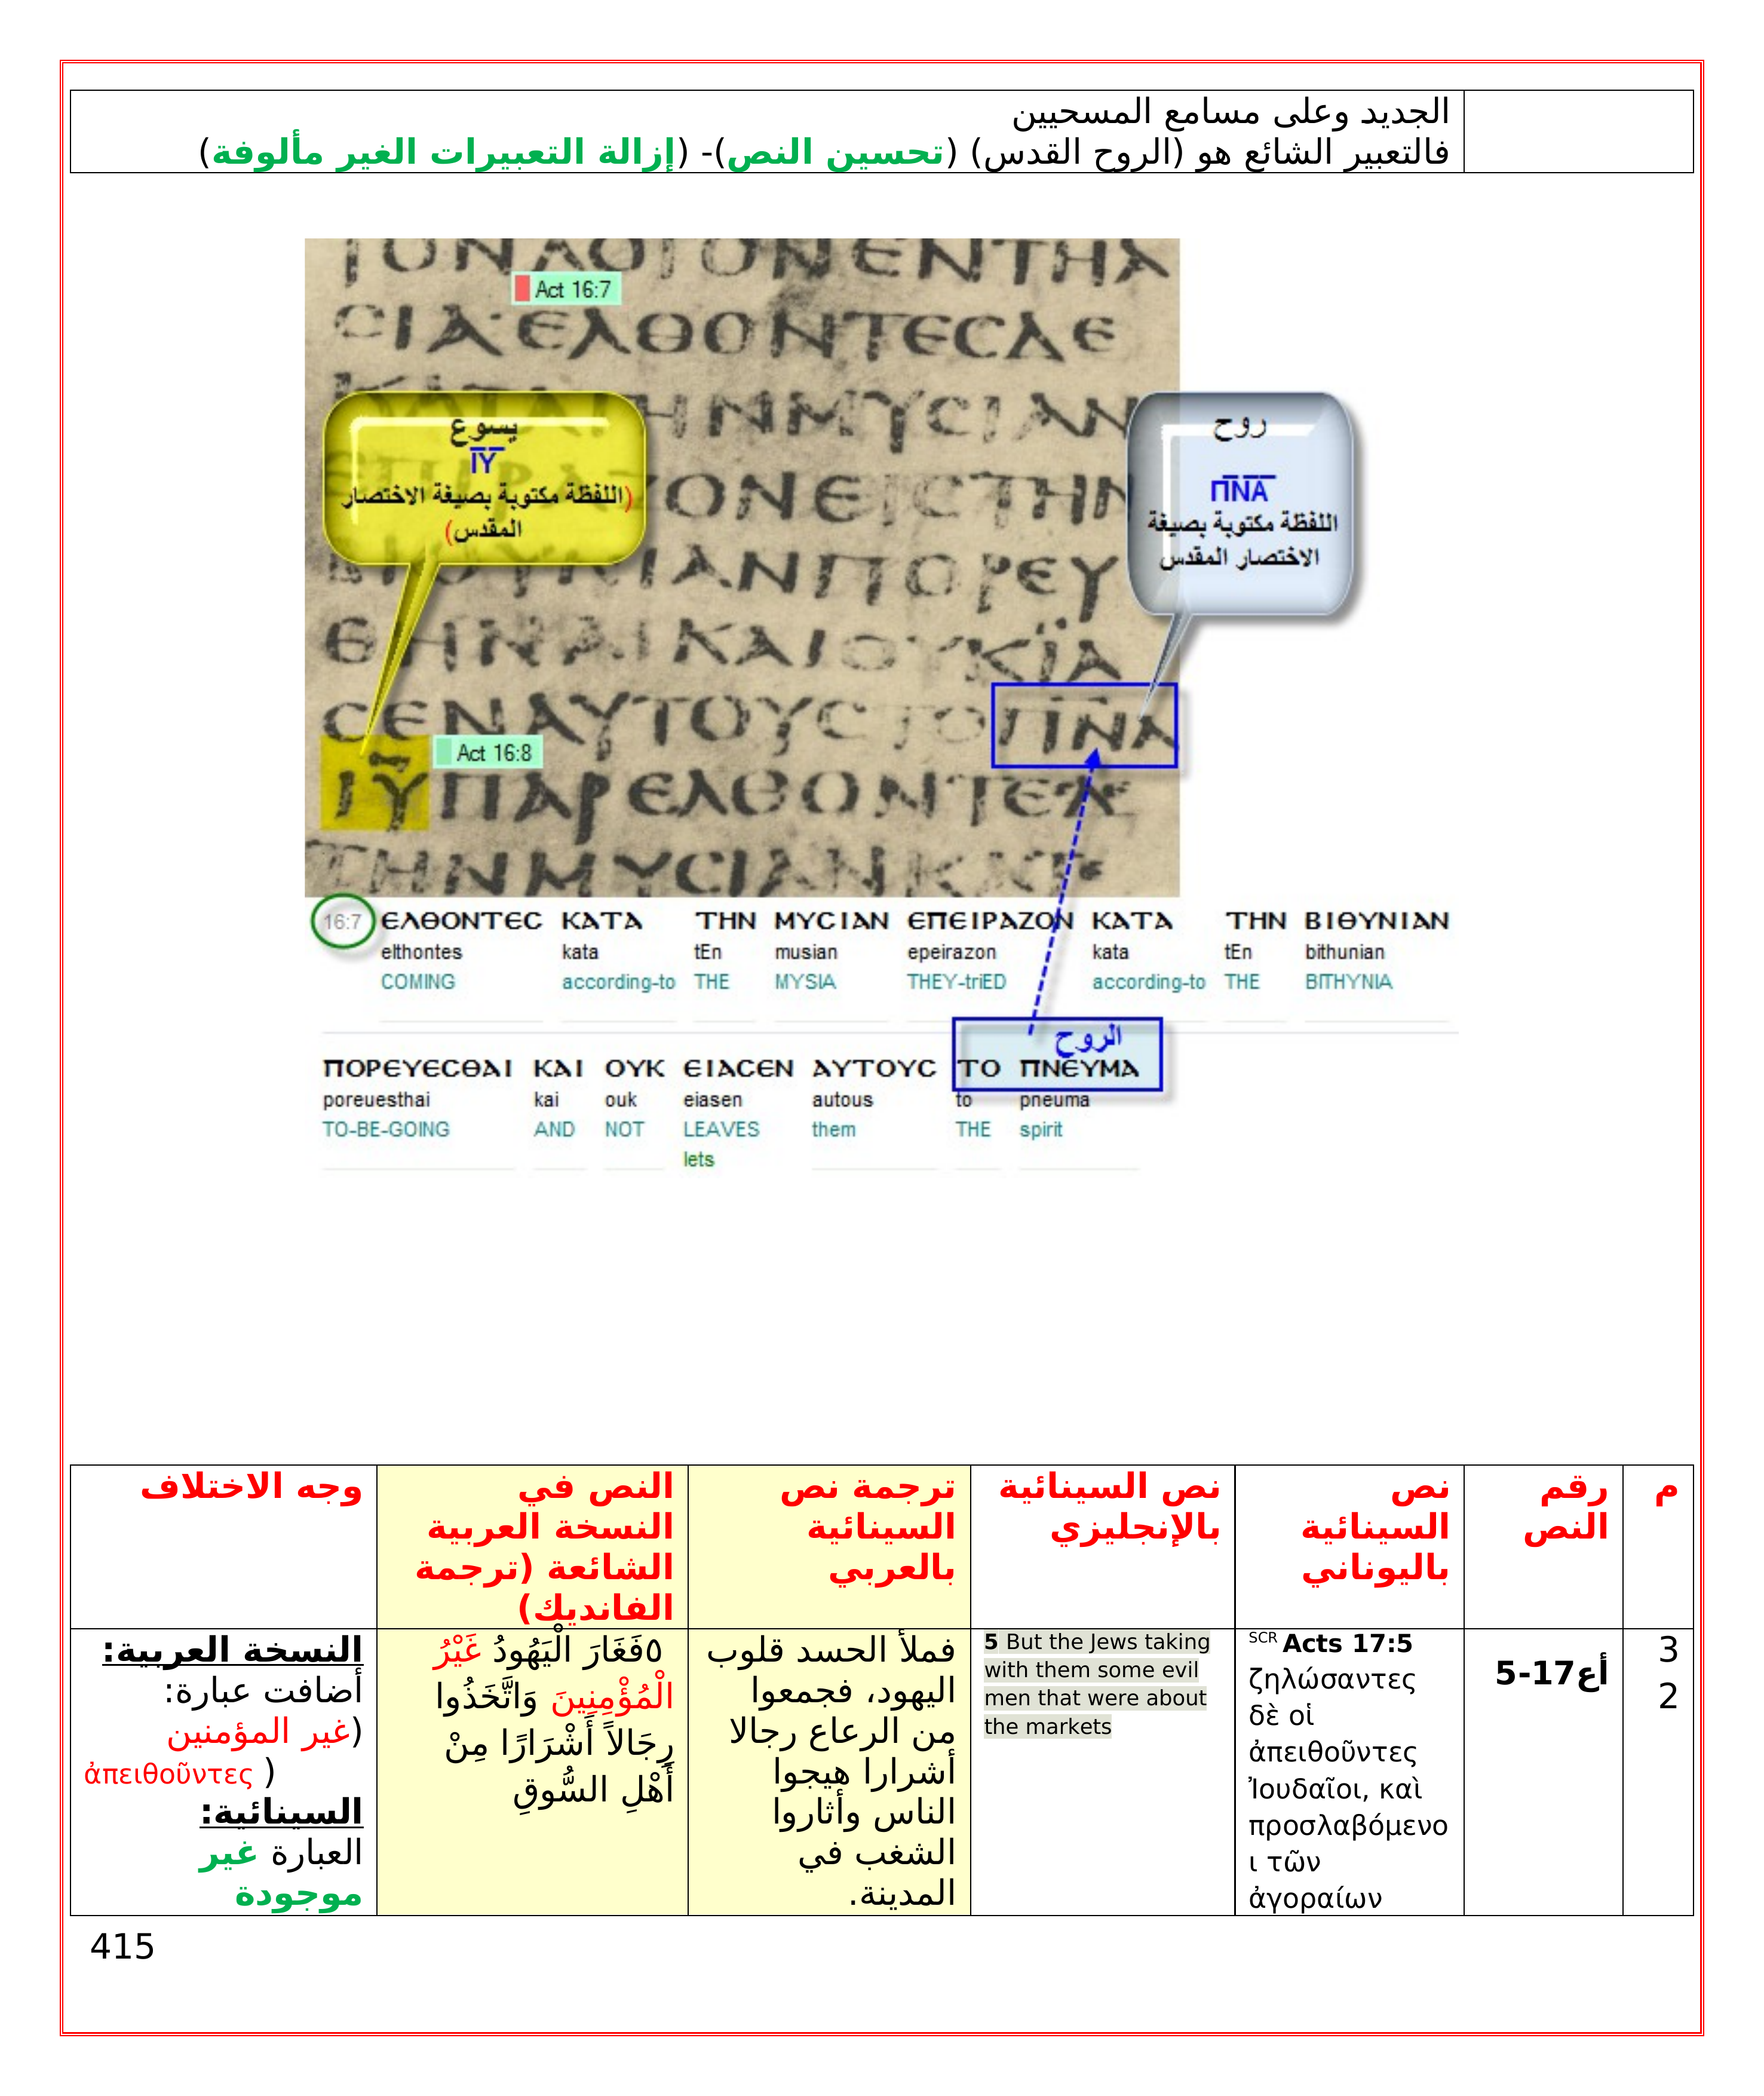 الجديد وعلى مسامع المسحيين
فالتعبير الشائع هو (الروح القدس) (تحسين النص)- (إزالة التعبيرات الغير مألوفة)
Act 16:7
ϹΙΑ ΕΛΘΟΝΤΕϹΔΕ
يسوع
ΙΥ
(اللفظة مكتوبة بصيغة الاختصار
المقدس)
روح
ΠΝΑ
اللفظة مكتوبة بصيغة
الاختصار المقدس
ΘΗΝΑΙΚΑΙΟΥΚΪΑ
ϹΕΝΑΥΤΟΥϹΤΟΠΝΑ
Act 16:8
ΙΥΠΑΡΕΛΘΟΝΤΕϹ
ΤΗΝΜΥϹΙΑΝΚΑΤ
16:7 ΕΛΘΟΝΤΕϹ ΚΑΤΑ ΤΗΝ ΜΥϹΙΑΝ ΕΠΕΙΡΑΖΟΝ ΚΑΤΑ ΤΗΝ ΒΙΘΥΝΙΑΝ
elthontes kata tEn musian epeirazon kata tEn bithunian
COMING according-to THE MYSIA THEY-triED according-to THE BITHYNIA
الروح
ΠΟΡΕΥΕϹΘΑΙ ΚΑΙ ΟΥΚ ΕΙΑϹΕΝ ΑΥΤΟΥϹ ΤΟ ΠΝΕΥΜΑ
poreuesthai kai ouk eiasen autous to pneuma
TO-BE-GOING AND NOT LEAVES them THE spirit
lets
م
رقم
النص
نص
السينائية
باليوناني
نص السينائية
بالإنجليزي
ترجمة نص
السينائية
بالعربي
النص في
النسخة العربية
الشائعة (ترجمة
الفانديك)
وجه الاختلاف
3
2
أع17-5
SCR Acts 17:5
ζηλώσαντες
δὲ οἱ
ἀπειθοῦντες
Ἰουδαῖοι, καὶ
προσλαβόμενο
ι τῶν
ἀγοραίων
5 But the Jews taking
with them some evil
men that were about
the markets
فملأ الحسد قلوب
اليهود، فجمعوا
من الرعاع رجالا
أشرارا هيجوا
الناس وأثاروا
الشغب في
المدينة.
٥فَغَارَ الْيَهُودُ غَيْرُ
الْمُؤْمِنِينَ وَاتَّخَذُوا
رِجَالاً أَشْرَارًا مِنْ
أَهْلِ السُّوقِ
النسخة العربية:
أضافت عبارة:
(غير المؤمنين
ἀπειθοῦντες )
السينائية:
العبارة غير
موجودة
415